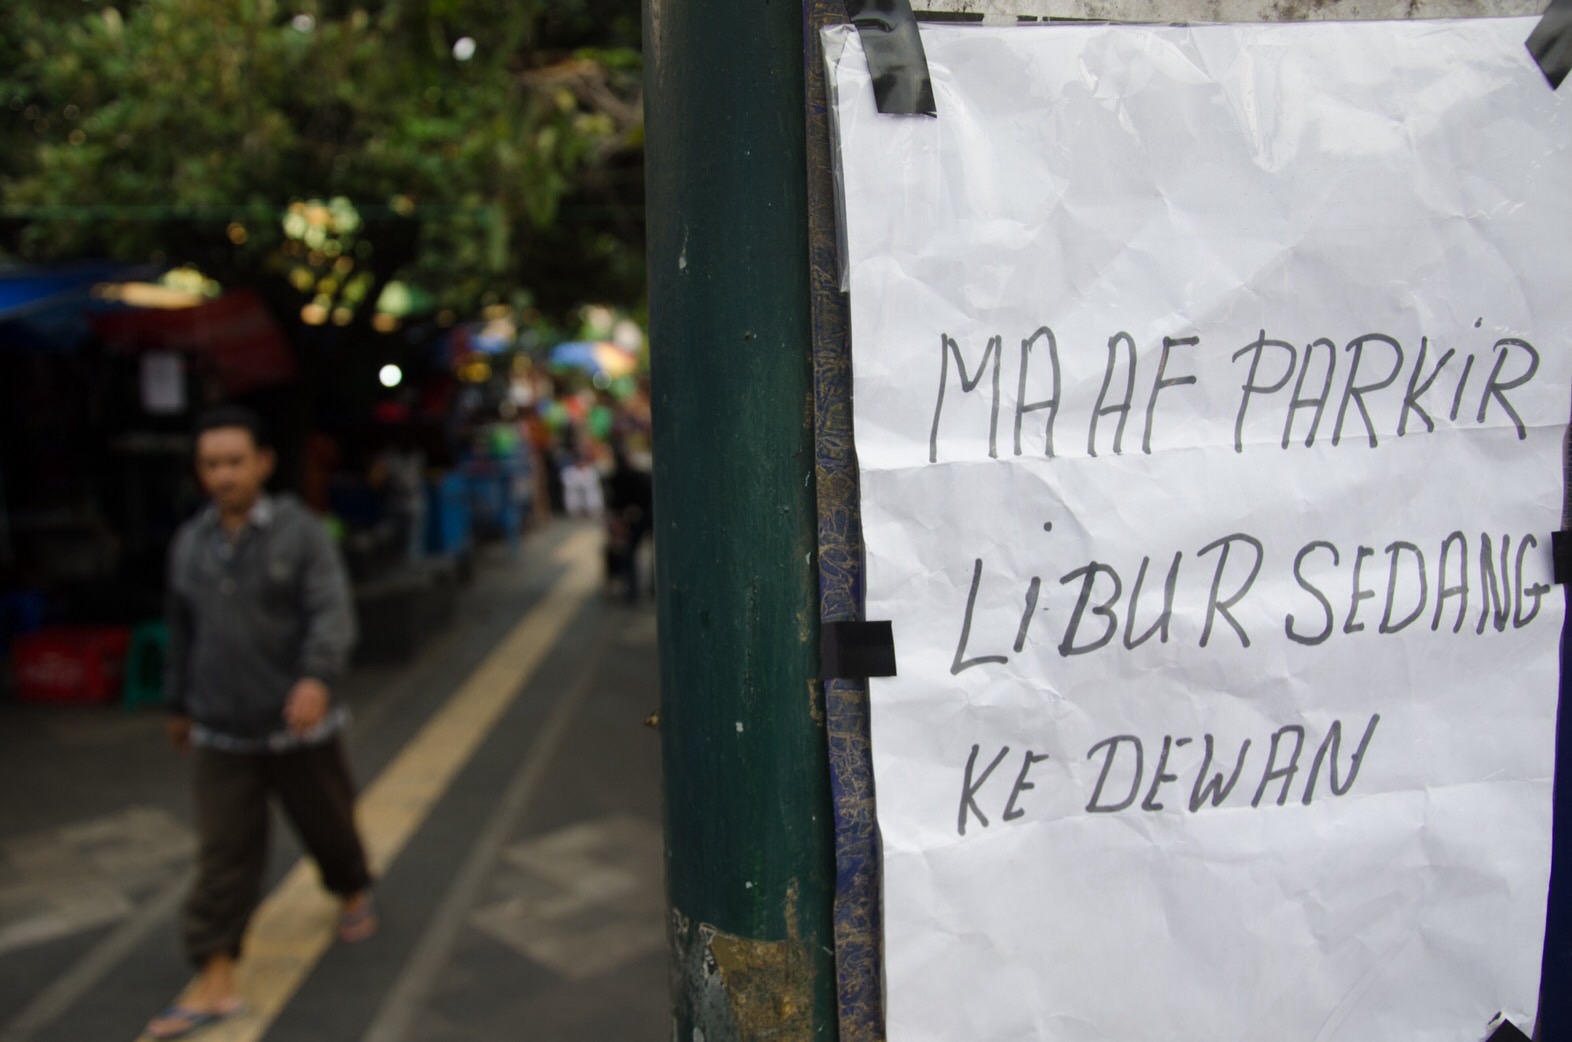 MAAF PARKiR
LiBUR SEDANG
KE DEWAN